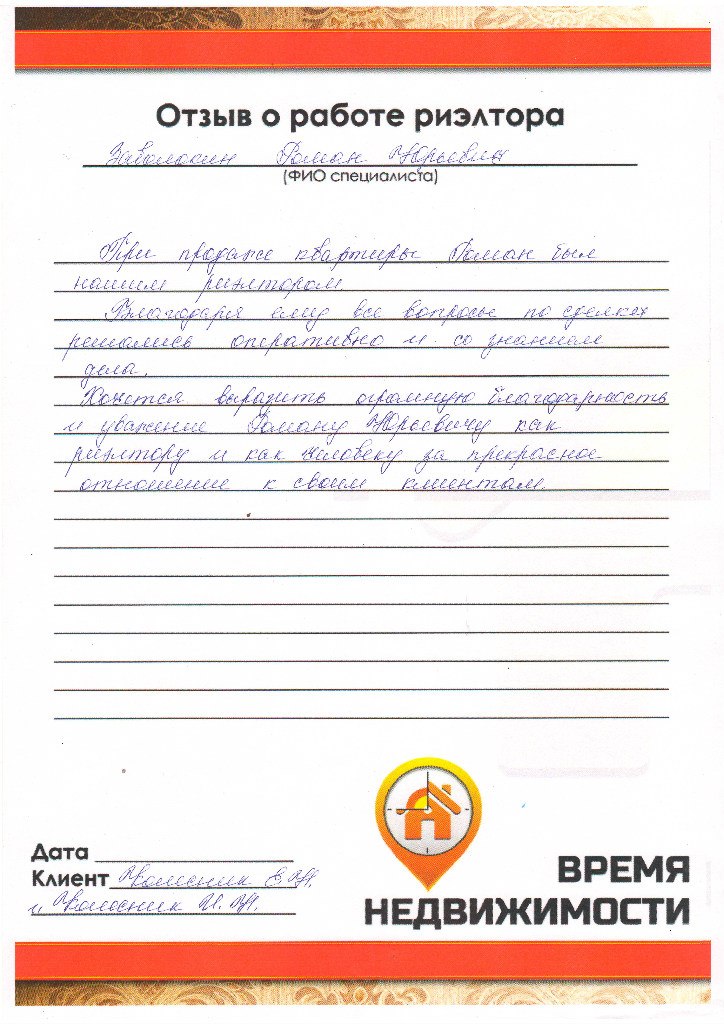 Отзыв о работе риэлтора
Заволосин Роман Юрьевич
(ФИО специалиста)
При продаже квартиры Роман был
нашим риэлтором.
Благодаря ему все вопросы по сделкех
решались оперативно и со знанием
дела.
Хочется выразить огромную благодарность
и уважение Роману Юрьевичу как
риэлтору и как человеку за прекрасное
отношение к своим клиентам.
Дата
Клиент
и
ВРЕМЯ
НЕДВИЖИМОСТИ